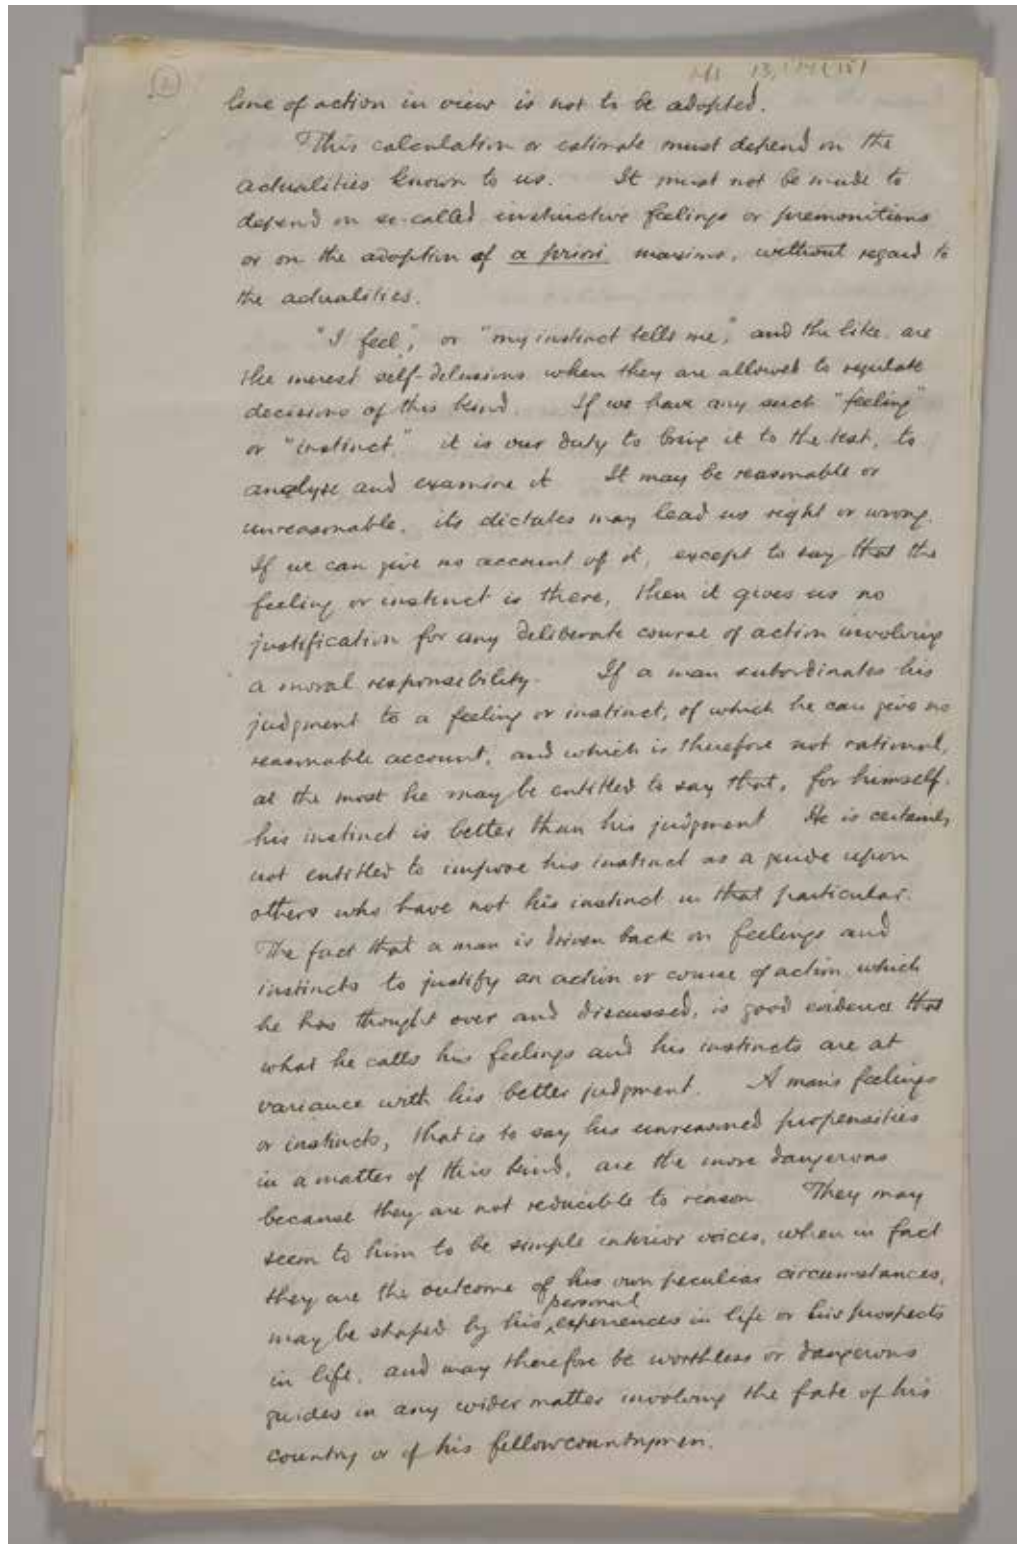 MS 13,174(15)
line of action in view is not to be adopted.
This calculation or estimate must depend on the
actualities known to us. It must not be made to
depend on so-called instinctive feelings or premonitions
or on the adoption of a priori maxims, without regard to
the actualities.
"I feel", or "my instinct tells me", and the like, are
the merest self-delusions when they are allowed to regulate
decisions of this kind. If we have any such "feeling"
or "instinct," it is our duty to bring it to the test, to
analyse and examine it. It may be reasonable or
unreasonable, its dictates may lead us right or wrong.
If we can give no account of it, except to say that the
feeling or instinct is there, then it gives us no
justification for any deliberate course of action involving
a moral responsibility. If a man subordinates his
judgment to a feeling or instinct, of which he can give no
reasonable account, and which is therefore not rational,
at the most he may be entitled to say that, for himself,
his instinct is better than his judgment. He is certainly
not entitled to impose his instinct as a guide upon
others who have not his instinct in that particular.
The fact that a man is driven back on feelings and
instincts to justify an action or course of action which
he has thought over and discussed, is good evidence that
what he calls his feelings and his instincts are at
variance with his better judgment. A man's feelings
or instincts, that is to say his unreasoned propensities
in a matter of this kind, are the more dangerous
because they are not reducible to reason. They may
seem to him to be simple interior voices, when in fact
they are the outcome of his own peculiar circumstances,
may be shaped by his personal experiences in life or his prospects
in life, and may therefore be worthless or dangerous
guides in any wider matter involving the fate of his
country or of his fellowcountrymen.